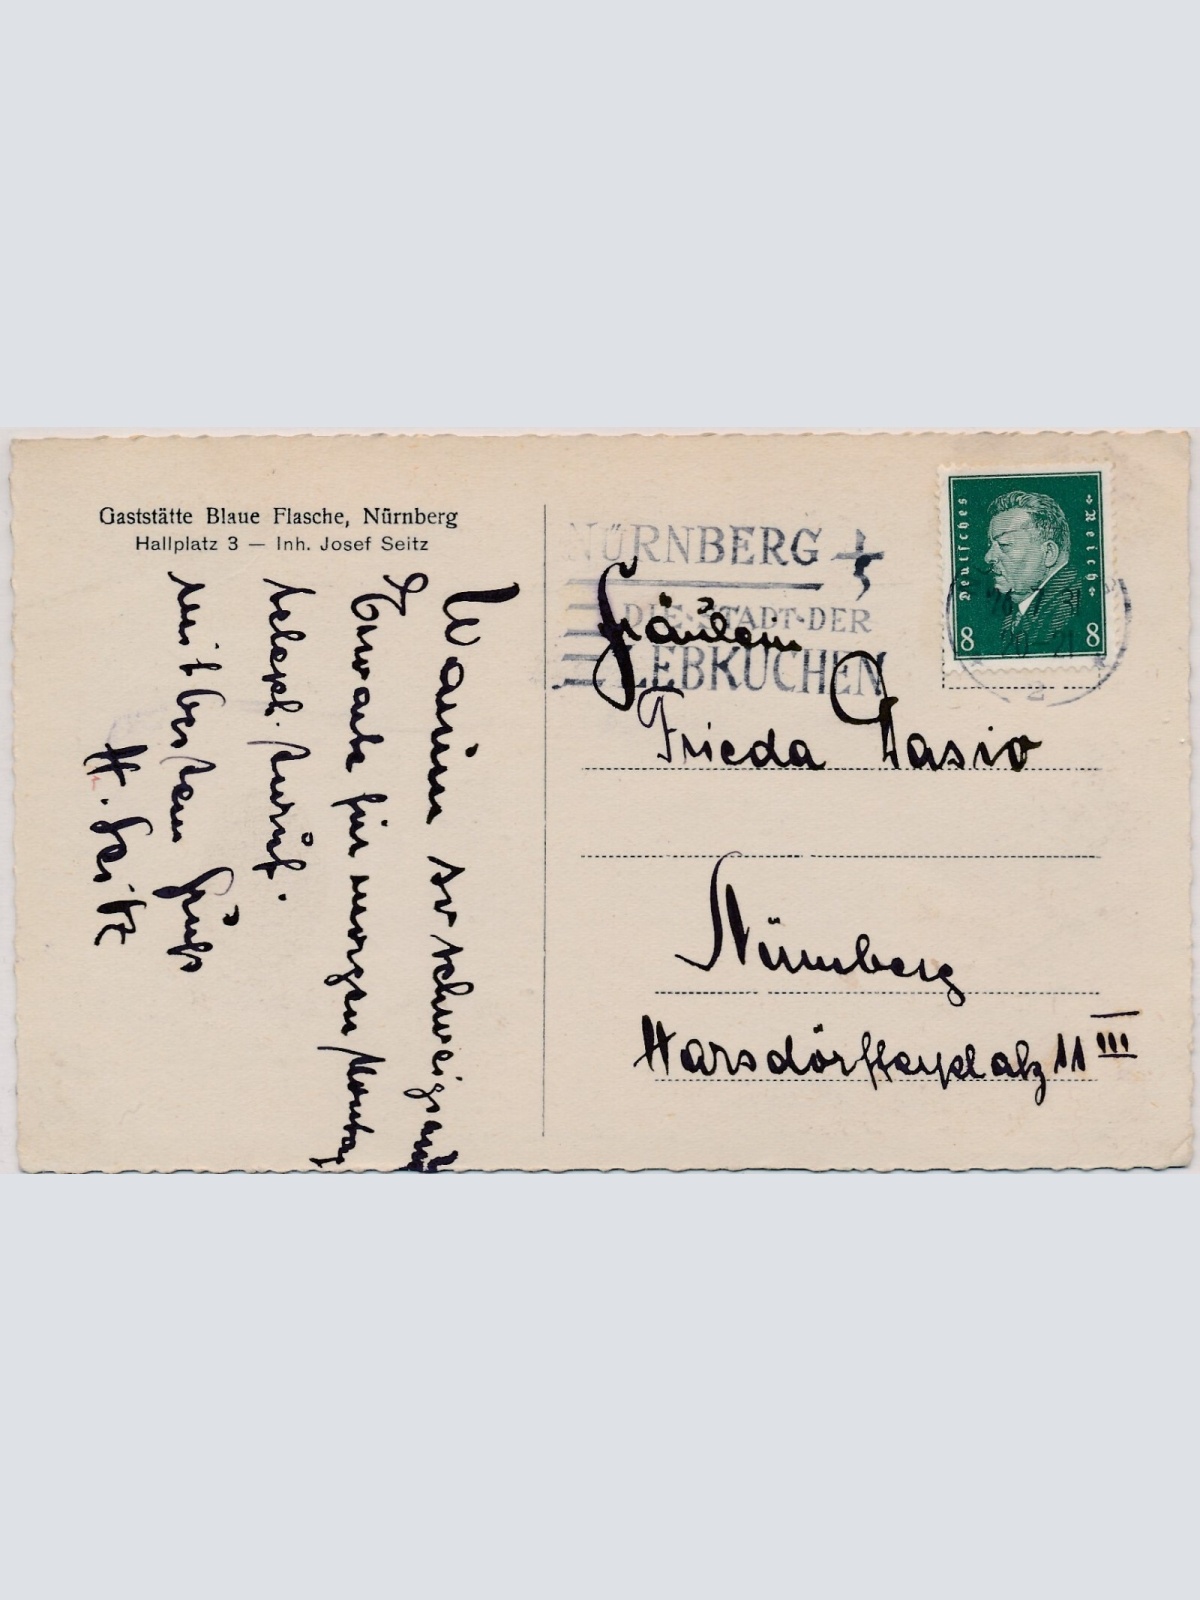 Gaststätte Blaue Flasche, Nürnberg
Hallplatz 3 — Inh. Josef Seitz
Warum so schweigsam
Erwarte für morgen Montag
teleph. Anruf.
mit bestem Gruß
H. Seitz
NÜRNBERG
DIE·STADT·DER
LEBKUCHEN
Deutsches Reich
8 8
20-21
2
Fräulein
Frieda Dasio
Nürnberg
Harsdörfferplatz 11 III